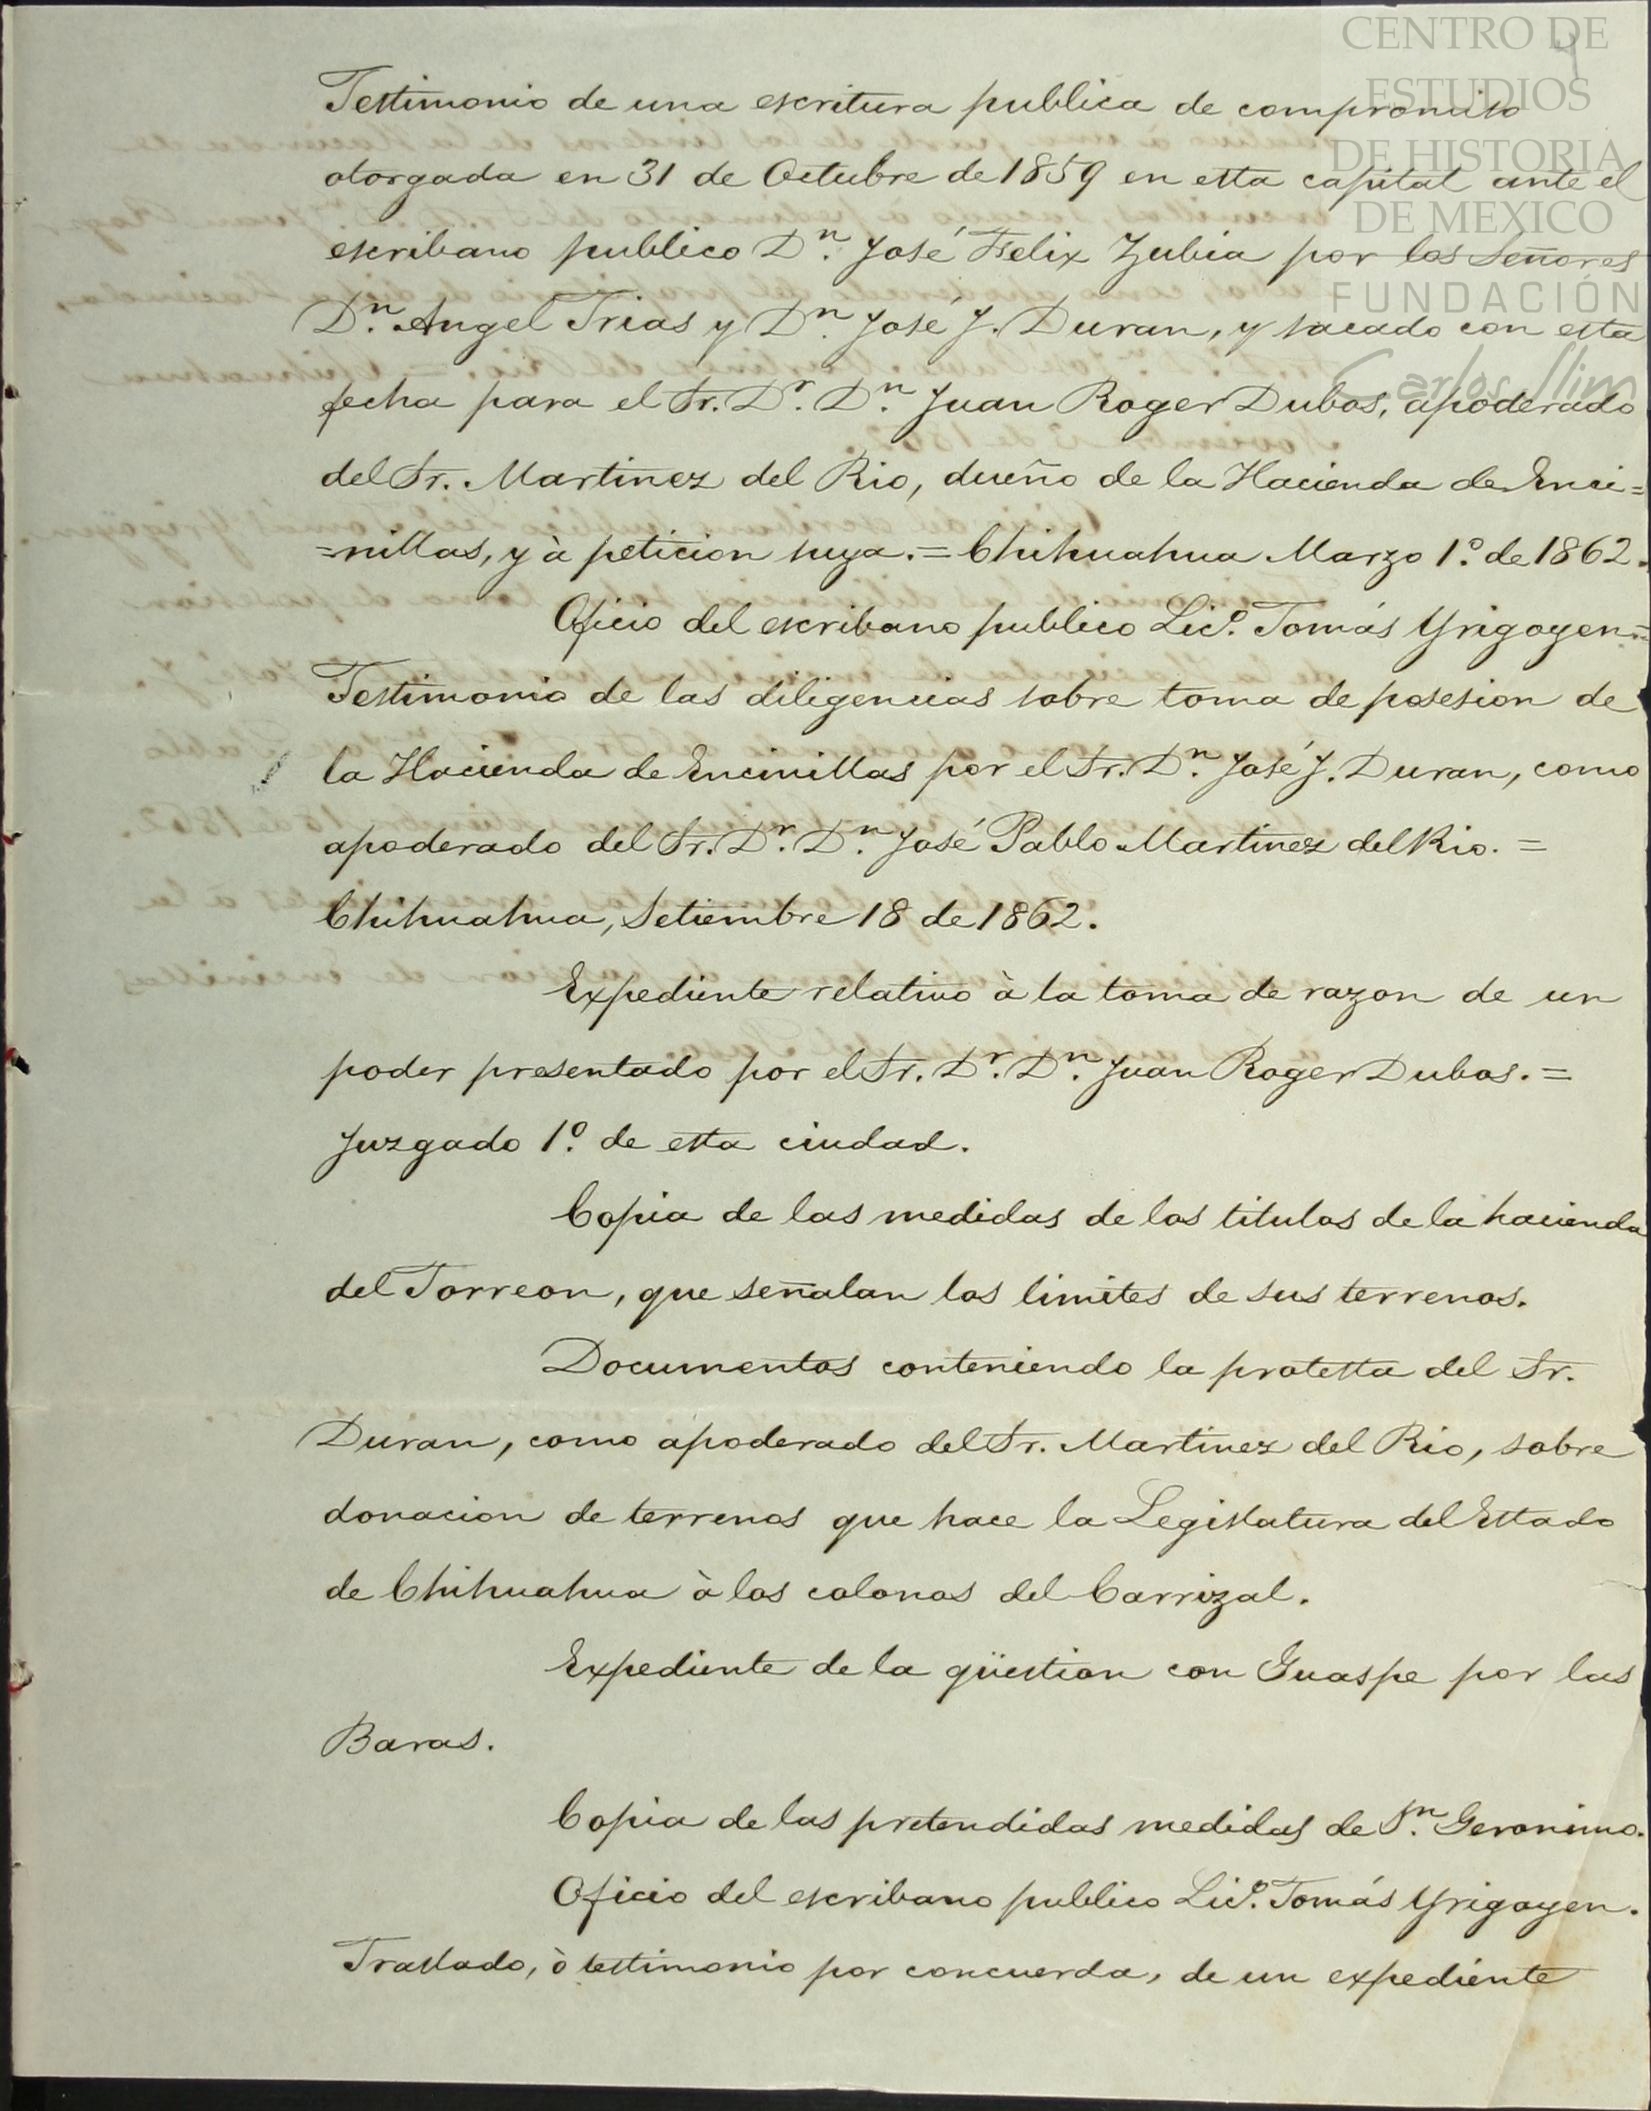 CENTRO DE
ESTUDIOS
DE HISTORIA
DE MEXICO
FUNDACIÓN
Carlos Slim
Testimonio de una escritura publica de compromiso
otorgada en 31 de Octubre de 1859 en esta capital ante el
escribano publico Dn. José Felix Zubia por los Señores
Dn. Angel Trias y Dn. José J. Duran, y sacado con esta
fecha para el Sr. Dr. Dn. Juan Roger Dubos, apoderado
del Sr. Martinez del Rio, dueño de la Hacienda de Enci=
=nillas, y à peticion suya.= Chihuahua Marzo 1º. de 1862.
Oficio del escribano publico Licº. Tomás Yrigoyen.=
Testimonio de las diligencias sobre toma de posesion de
la Hacienda de Encinillas por el Sr. Dn. José J. Duran, como
apoderado del Sr. Dr. Dn. José Pablo Martinez del Rio. =
Chihuahua, Setiembre 18 de 1862.
Expediente relativo à la toma de razon de un
poder presentado por el Sr. Dr. Dn. Juan Roger Dubos. =
Juzgado 1º. de esta ciudad.
Copia de las medidas de los titulos de la hacienda
del Torreon, que señalan los limites de sus terrenos.
Documentos conteniendo la protesta del Sr.
Duran, como apoderado del Sr. Martinez del Rio, sobre
donacion de terrenos que hace la Legislatura del Estado
de Chihuahua à los colonos del Carrizal.
Expediente de la qüestion con Guaspe por las
Baras.
Copia de las pretendidas medidas de Sn. Geronimo.
Oficio del escribano publico Licº. Tomás Yrigoyen.
Traslado, ò testimonio por concuerda, de un expediente